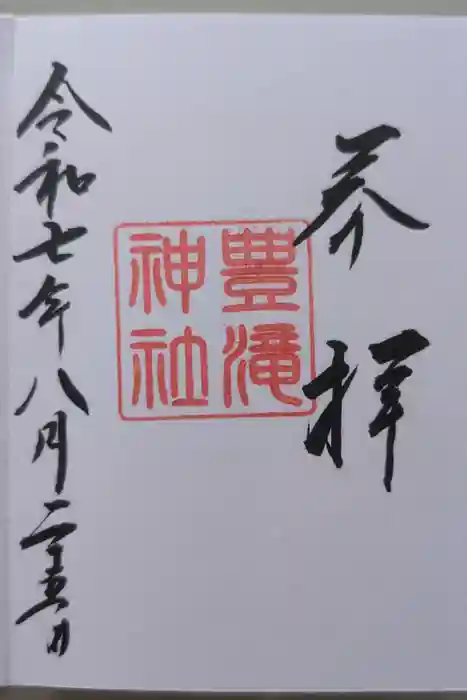 奉拝
豊滝
神社
令和七年八月二十五日